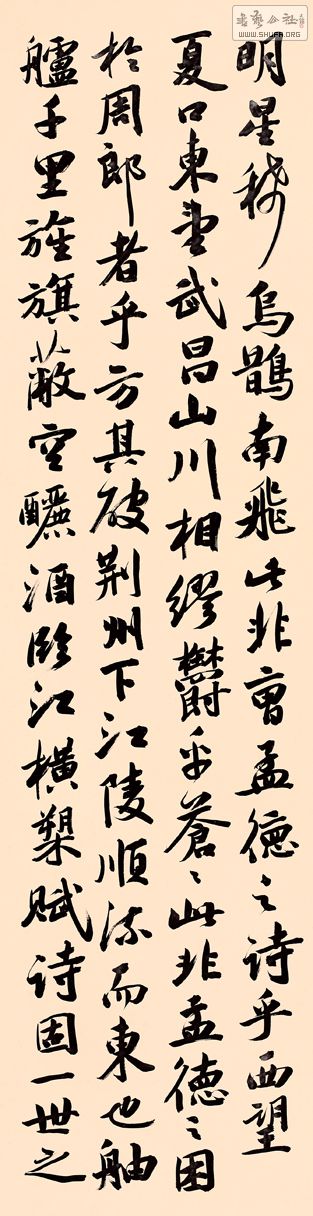 明星稀烏鵲南飛此非曹孟德之诗乎西望
夏口東望武昌山川相缪欝乎蒼〻此非孟德之困
於周郎者乎方其破荆州下江陵順流而東也舳
艫千里旌旗蔽空釃酒臨江横槊赋诗固一世之
書藝公社
WWW.SHUFA.ORG